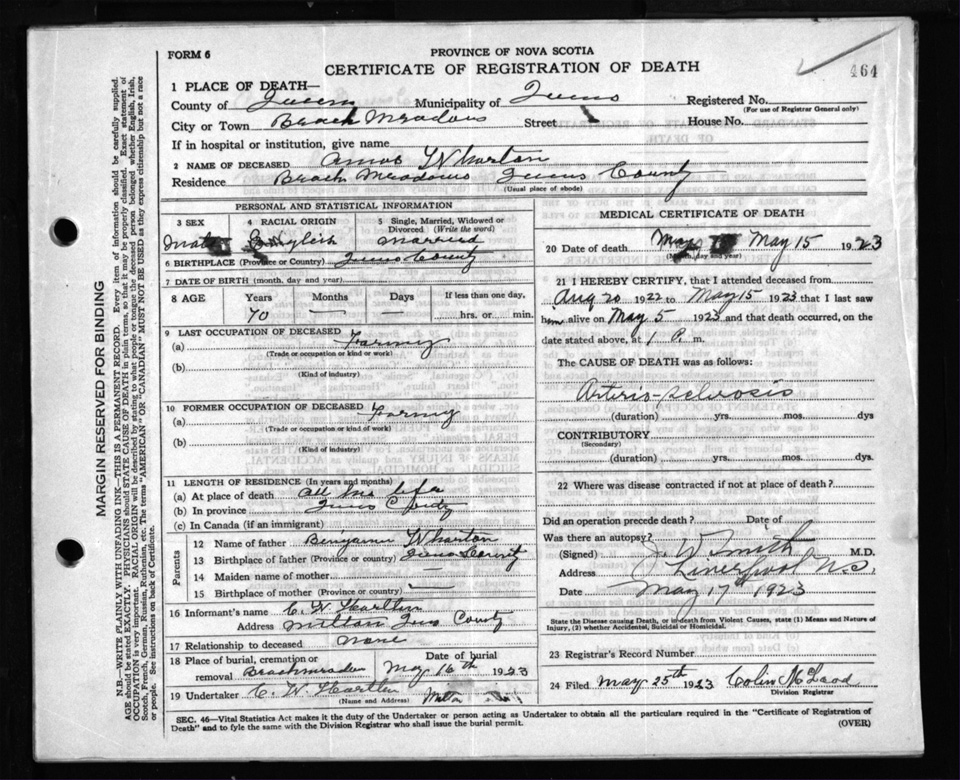 FORM 6
PROVINCE OF NOVA SCOTIA
CERTIFICATE OF REGISTRATION OF DEATH
464
1 PLACE OF DEATH—
County of Queens Municipality of Queens Registered No.
(For use of Registrar General only)
City or Town Beach Meadows Street House No.
If in hospital or institution, give name
2 NAME OF DECEASED Amos Wharton
Residence Beach Meadows Queens County
(Usual place of abode)
PERSONAL AND STATISTICAL INFORMATION
3 SEX 4 RACIAL ORIGIN 5 Single, Married, Widowed or Divorced (Write the word)
Male English Married
6 BIRTHPLACE (Province or Country) Queens County
7 DATE OF BIRTH (month, day and year)
8 AGE Years Months Days If less than one day,
70 — — hrs. or min.
9 LAST OCCUPATION OF DECEASED
(a) Farmer
(Trade or occupation or kind or work)
(b)
(Kind of industry)
10 FORMER OCCUPATION OF DECEASED
(a) Farmer
(Trade or occupation or kind of work)
(b)
(Kind of industry)
11 LENGTH OF RESIDENCE (In years and months)
(a) At place of death All his life
(b) In province Queens
(c) In Canada (if an immigrant)
Parents
12 Name of father Benjamin Wharton
13 Birthplace of father (Province or country) Queens County
14 Maiden name of mother —
15 Birthplace of mother (Province or country) —
16 Informant's name C. W. Hartlen
Address Milton Queens County
17 Relationship to deceased None
18 Place of burial, cremation or removal Beachmeadow Date of burial May 16th 1923
19 Undertaker C. W. Hartlen Milton
(Name and Address)
MEDICAL CERTIFICATE OF DEATH
20 Date of death May May 15 1923
(Month, day and year)
21 I HEREBY CERTIFY, that I attended deceased from
Aug 20 1922 to May 15 1923 that I last saw
him alive on May 5 1923 and that death occurred, on
date stated above, at 1 P. m.
The CAUSE OF DEATH was as follows:
Arterio-sclerosis
(duration) yrs. mos. dys
CONTRIBUTORY
(Secondary)
(duration) yrs. mos. dys.
22 Where was disease contracted if not at place of death?
Did an operation precede death? Date of
Was there an autopsy?
(Signed) J. W. Smith M.D.
Address Liverpool N.S.
Date May 17 1923
State the Disease causing Death, or in death from Violent Causes, state (1) Means and Nature of Injury, (2) whether Accidental, Suicidal or Homicidal.
23 Registrar's Record Number
24 Filed May 25th 1923 Colin McLeod
Division Registrar
SEC. 46—Vital Statistics Act makes it the duty of the Undertaker or person acting as Undertaker to obtain all the particulars required in the "Certificate of Registration of
Death" and to fyle the same with the Division Registrar who shall issue the burial permit. (OVER)
MARGIN RESERVED FOR BINDING
N.B.—WRITE PLAINLY WITH UNFADING INK—THIS IS A PERMANENT RECORD. Every item of information should be carefully supplied.
AGE should be stated EXACTLY. PHYSICIANS should STATE CAUSE OF DEATH in plain terms, so that it may be properly classified. Exact statement of
OCCUPATION is very important. RACIAL ORIGIN will be described by stating to what people or tongue the deceased person belonged whether English, Irish,
Scotch, French, German, Russian, Ruthenian, etc. The terms "AMERICAN" OR "CANADIAN" MUST NOT BE USED as they express citizenship but not a race
or people. See instructions on back of Certificate.